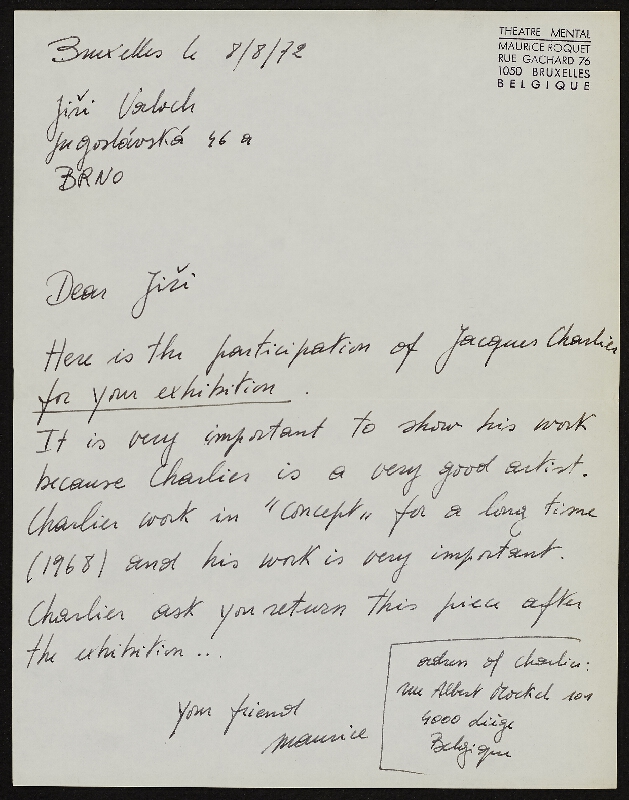 THEATRE MENTAL
MAURICE ROQUET
RUE GACHARD 76
1050 BRUXELLES
BELGIQUE
Bruxelles le 8/8/72
Jiři Valoch
Jugoslávská 46 a
BRNO
Dear Jiři
Here is the participation of Jacques Charlier
for your exhibition.
It is very important to show his work
because Charlier is a very good artist.
Charlier work in "concept" for a long time
(1968) and his work is very important.
Charlier ask you return this piece after
the exhibition...
your friend
Maurice
adress of Charlier:
rue Albert Mockel 101
4000 Liège
Belgique